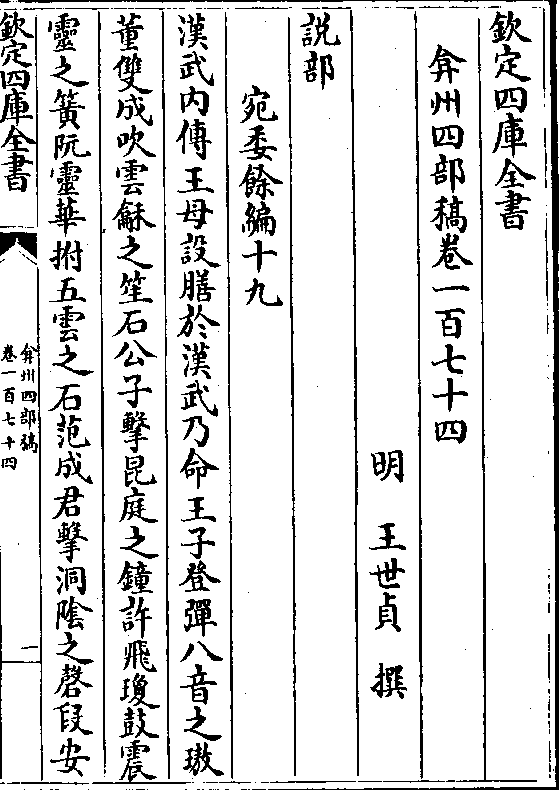 欽定四庫全書
弇州四部稿卷一百七十四
明　王世貞　撰
說部
宛委餘編十九
漢武内傳王母設膳於漢武乃命王子登彈八音之璈
董雙成吹雲龢之笙石公子擊昆庭之鐘許飛瓊鼓震
靈之簧阮靈華拊五雲之石范成君擊洞陰之磬段安
欽定四庫全書
弇州四部稿
卷一百七十四
一